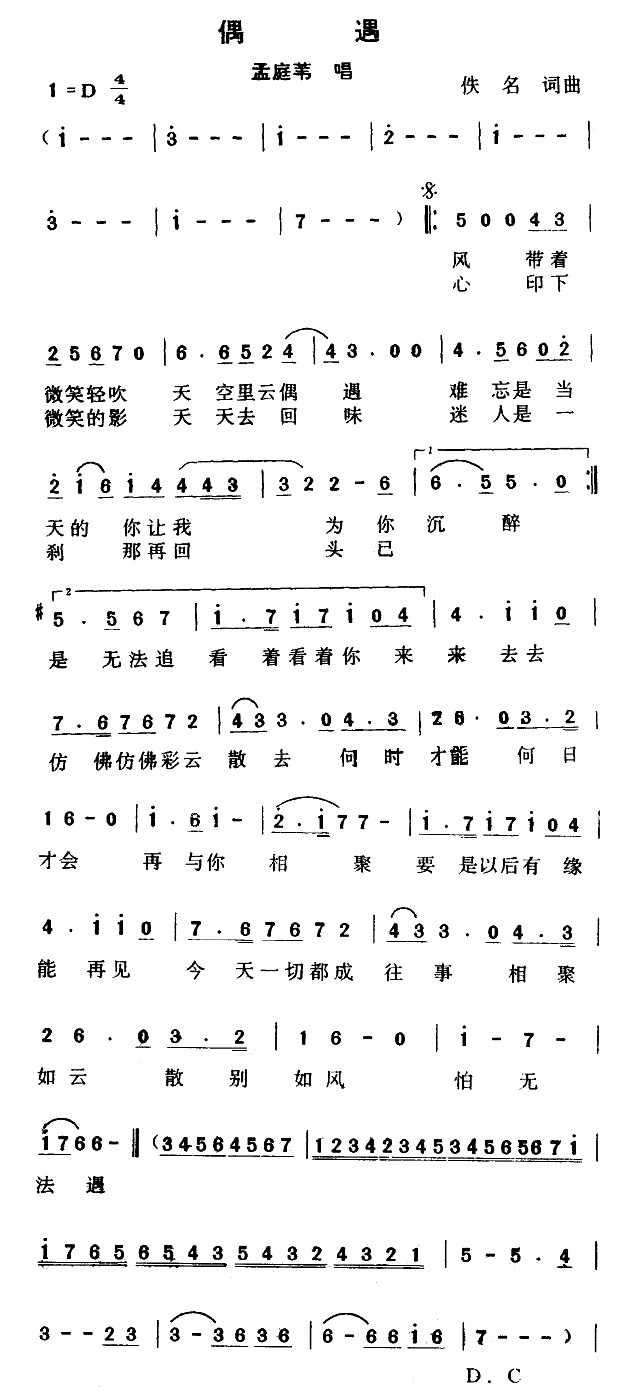 偶 遇
孟庭苇 唱
1=D 4/4
佚 名 词曲
(i - - - | 3 - - - | i - - - | 2 - - - | i - - - |
3 - - - | i - - - | 7 - - - ) ‖: 5 0 0 4 3 |
风 带着
心 印下
2 5 6 7 0 | 6 . 6 5 2 4 | 4 3 . 0 0 | 4 . 5 6 0 2 |
微笑轻吹 天 空里云偶 遇 难 忘是 当
微笑的影 天 天去 回 味 迷 人是 一
2 i 6 i 4 4 4 3 | 3 2 2 - 6 | 6 . 5 5 . 0 :‖
天的 你让我 为 你 沉 醉
刹 那再回 头 已
#5 . 5 6 7 | i . 7 i 7 i 0 4 | 4 . i i 0 |
是 无法追 看 着看着你 来 来 去去
7 . 6 7 6 7 2 | 4 3 3 . 0 4 . 3 | 2 6 . 0 3 . 2 |
仿 佛仿佛彩云 散 去 何 时 才能 何 日
1 6 - 0 | i . 6 i - | 2 . i 7 7 - | i . 7 i 7 i 0 4 |
才会 再 与你 相 聚 要 是以后有 缘
4 . i i 0 | 7 . 6 7 6 7 2 | 4 3 3 . 0 4 . 3 |
能 再见 今 天一切都成 往 事 相 聚
2 6 . 0 3 . 2 | 1 6 - 0 | i - 7 - |
如云 散 别 如风 怕 无
i 7 6 6 - ‖ (3 4 5 6 4 5 6 7 | 1 2 3 4 2 3 4 5 3 4 5 6 5 6 7 i |
法 遇
i 7 6 5 6 5 4 3 5 4 3 2 4 3 2 1 | 5 - 5 . 4 |
3 - - 2 3 | 3 - 3 6 3 6 | 6 - 6 6 i 6 | 7 - - - ) |
D . C